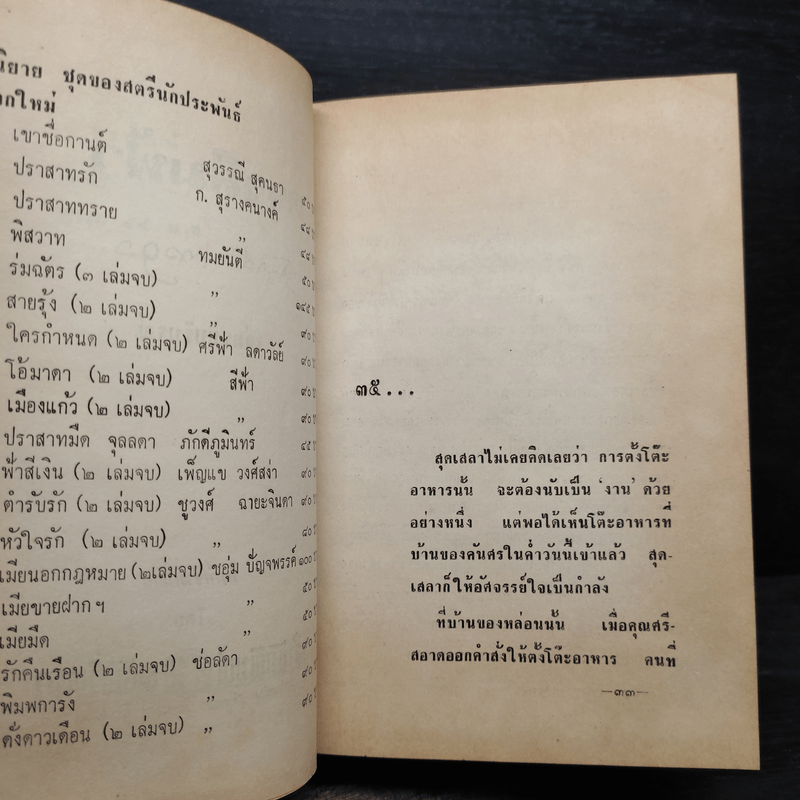 นิยาย ชุดของสตรีนักประพันธ์
อกใหม่
เขาชื่อกานต์ สุวรรณี สุคนธา ๕๐
ปราสาทรัก ก. สุรางคนางค์ ๔๕
ปราสาททราย ” ๔๕
พิสวาท ทมยันตี ๕๐
ร่มฉัตร (๓ เล่มจบ) ” ๑๔๕
สายรุ้ง (๒ เล่มจบ) ” ๙๐
ใครกำหนด (๒ เล่มจบ) ศรีฟ้า ลดาวัลย์ ๙๐
โอ้มาดา (๒ เล่มจบ) สีฟ้า ๙๐
เมืองแก้ว (๒ เล่มจบ) ” ๙๐
ปราสาทมืด จุลลดา ภักดีภูมินทร์ ๔๕
ฟ้าสีเงิน (๒ เล่มจบ) เพ็ญแข วงศ์สง่า ๙๐
ตำรับรัก (๒ เล่มจบ) ชูวงศ์ ฉายะจินดา ๙๐
หัวใจรัก (๒ เล่มจบ) ” ๘๐
เมียนอกกฎหมาย (๒เล่มจบ) ชอุ่ม ปัญจพรรค์ ๑๐๐
เมียขายฝาก ฯ ” ๕๐
เมียมืด ” ๕๐
รักคืนเรือน (๒ เล่มจบ) ช่อลัดา ๙๐
พิมพการัง ” ๙๐
ดั่งดาวเดือน (๒ เล่มจบ) ” ๙๐
๓๕...
สุดเสลาไม่เคยคิดเลยว่า การตั้งโต๊ะ
อาหารนั้น จะต้องนับเป็น ‘งาน’ ด้วย
อย่างหนึ่ง แต่พอได้เห็นโต๊ะอาหารที่
บ้านของคันศรในค่ำวันนี้เข้าแล้ว สุด-
เสลาก็ให้อัศจรรย์ใจเป็นกำลัง
ที่บ้านของหล่อนนั้น เมื่อคุณศรี-
สอาดออกคำสั่งให้ตั้งโต๊ะอาหาร คนที่
—๓๓—